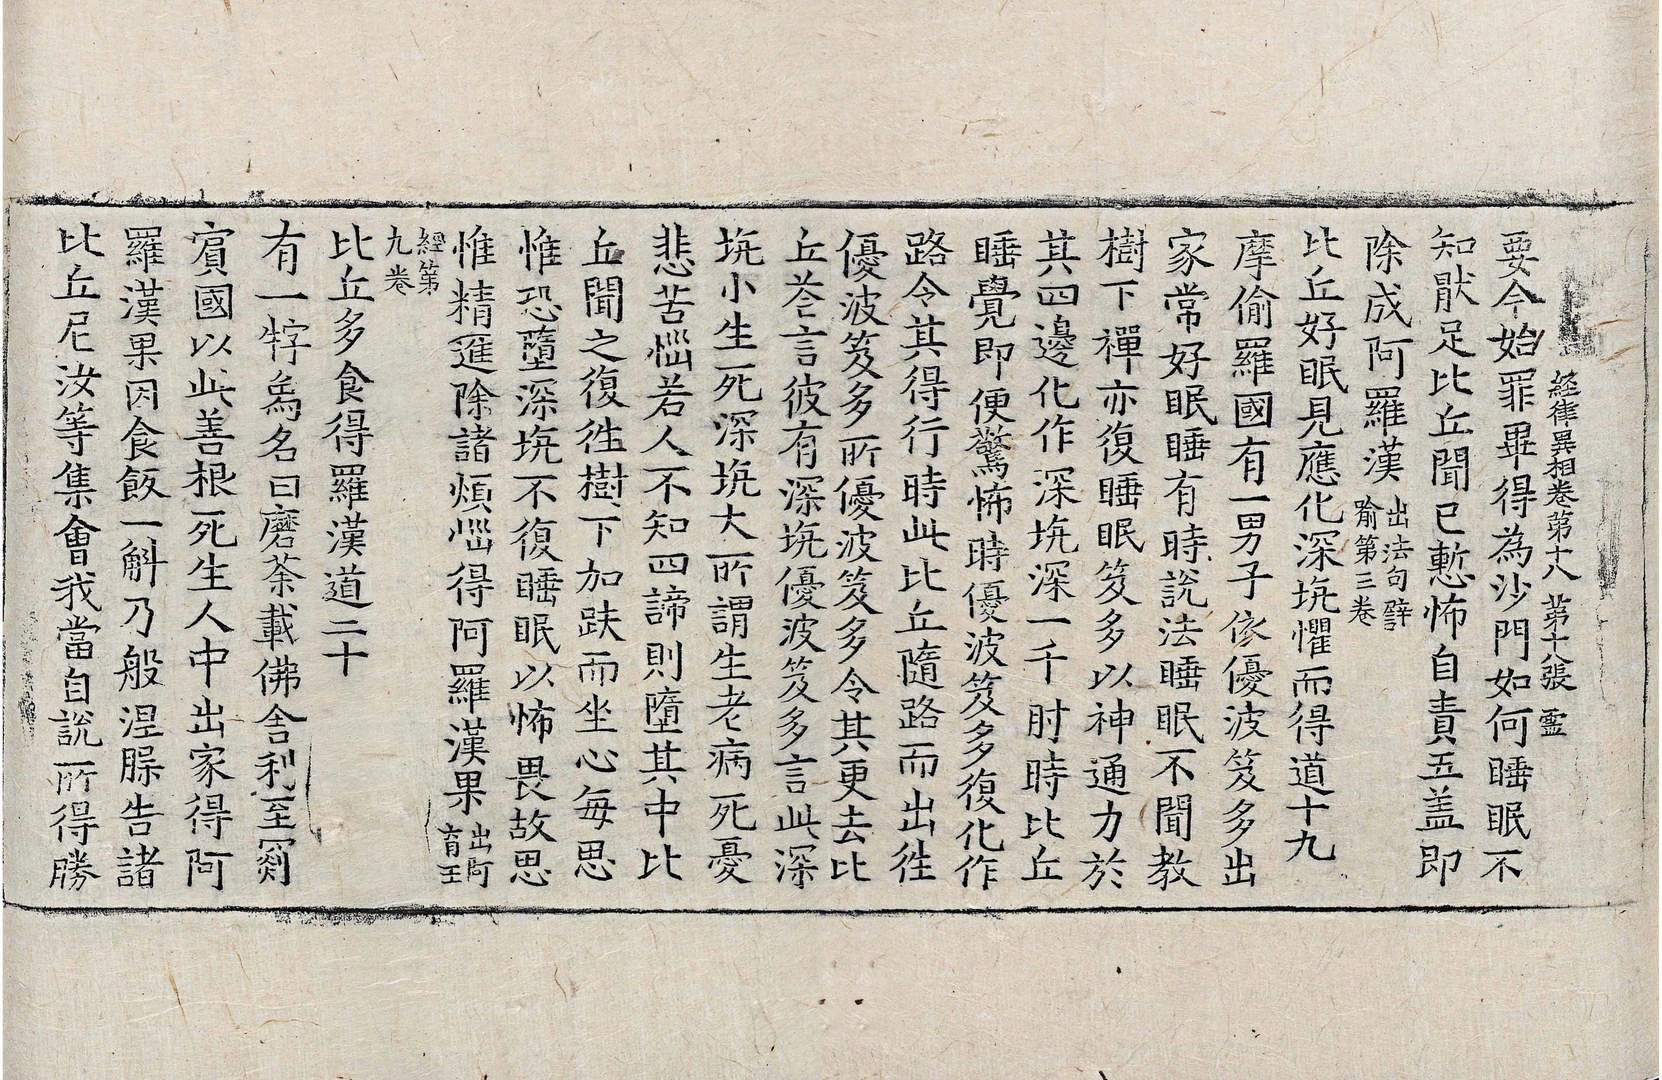 經律異相卷第十八 第十八張 霊
要今始罪畢得為沙門如何睡眠不
知猒足比丘聞已慙怖自責五盖即
除成阿羅漢出法句譬喻第三卷
比丘好眠見應化深坑懼而得道十九
摩偷羅國有一男子依優波笈多出
家常好眠睡有時說法睡眠不聞教
樹下禪亦復睡眠笈多以神通力於
其四邊化作深坑深一千肘時比丘
睡覺即便驚怖時優波笈多復化作
路令其得行時此比丘隨路而出徃
優波笈多所優波笈多令其更去比
丘荅言彼有深坑優波笈多言此深
坑小生死深坑大所謂生老病死憂
悲苦惱若人不知四諦則墮其中比
丘聞之復徃樹下加趺而坐心每思
惟恐墮深坑不復睡眠以怖畏故思
惟精進除諸煩惱得阿羅漢果出阿育王
經第九卷
比丘多食得羅漢道二十
有一牸爲名曰磨荼載佛舍利至罽
賓國以此善根死生人中出家得阿
羅漢果因食飯一斛乃般涅槃告諸
比丘尼汝等集會我當自說所得勝